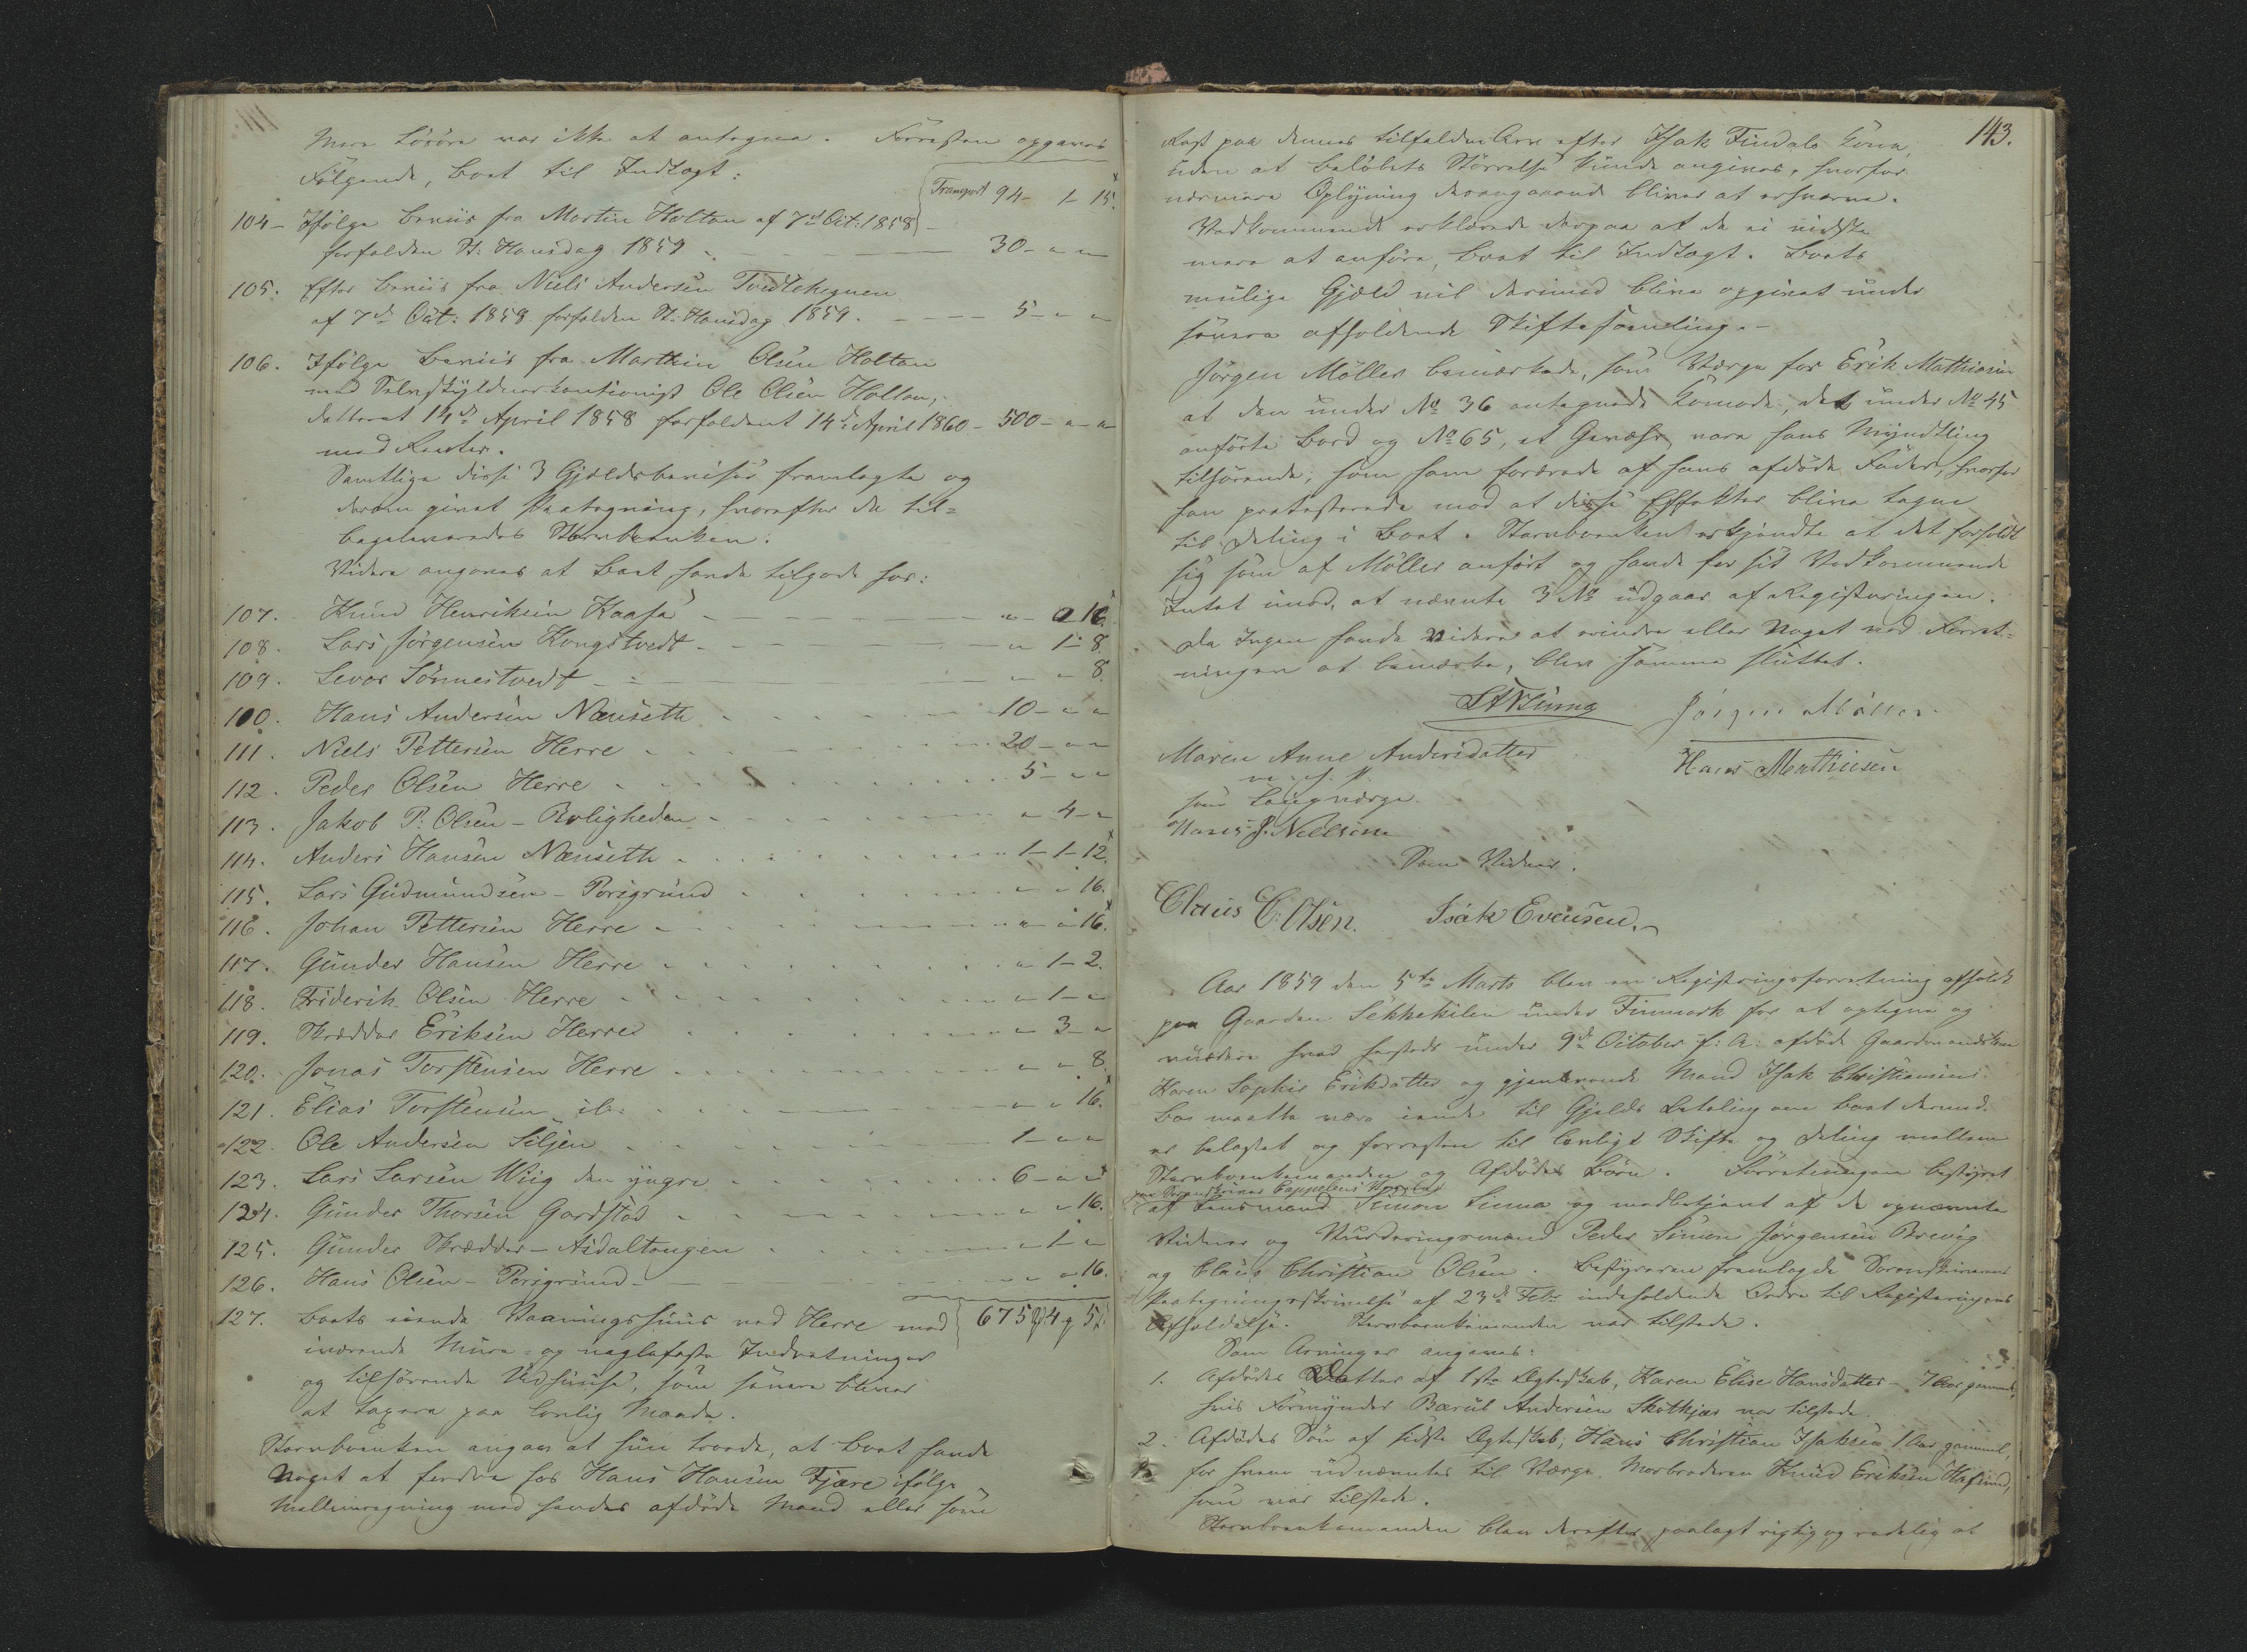 Mere Løsøre var ikke at antegne. Forresten opgaves
Følgende, Boet til Indtægt:
Transport 94 - 1 - 15.
104 - Ifølge Beviis fra Martin Holtan af 7de Oct: 1858
forfalden St: Hansdag 1859 - 30 - " - "
105. Efter Beviis fra Niels Andersen Tvedtehegnen
af 7de Oct: 1858 forfalden St: Hansdag 1859. - 5 - " - "
106. Ifølge Beviis fra Marthin Olsen Holtan
med Selvskyldnerkautionist Ole Olsen Holtan,
datteret 14de April 1858 forfaldent 14de April 1860 - 500 - " - "
med Renter.
Samtlige disse 3 Gjældsbeviser fremlagte og
derom givet Paategning, hvorefter de til=
bageleveredes Stervboenken.
Videre angaves at Boet havde tilgode hos:
107. Knud Henriksen Kaasa - " - " 16.
108. Lars Jørgensen Kongstvedt - " 1 - 8.
109. Levor Sønnestvedt - " - " 8.
110. Hans Andersen Nenseth 10 - " - "
111. Niels Pettersen Herre 20 - " - "
112. Peder Olsen Herre 5 - " - "
113. Jakob P. Olsen - Boligheden - " - 4 - "
114. Anders Hansen Nenseth 1 - 1 - 12.
115. Lars Gudmundsen - Porsgrund " - " 16.
116. Johan Pettersen Herre " - " 16.
117. Gunder Hansen Herre " 1 - 2.
118. Friderik Olsen Herre " - 1 - "
119. Skrædder Eriksen Herre " 3 - "
120. Jonas Torstensen Herre " - " 8.
121. Elias Torstensen ib: " - " 16.
122. Ole Andersen Siljen 1 - " - "
123. Lars Larsen Wiig den yngre 6 - " - "
124. Gunder Thorsen Gardstad " - " 16.
125. Gunder Skrædder - Asdaltangen " 1 - "
126. Hans Olsen - Porsgrund " - " 16.
127. Boets eiende Vaaningshuus ved Herre med 675 4 5
iværende Muur- og naglefaste Indretninger
og tilhørende Udhuuse, som senere bliver
at taxere paa lovlig Maade.
Stervboenken angav at hun troede, at Boet havde
Noget at fordre hos Hans Hansen Fjære ifølge
Mellemregning med hendes afdøde Mand eller som
143.
Rest paa dennes tilfaldne Arv efter Isak Findals Kone,
uden at Beløbets Størrelse kunde angives, hvorfor
nærmere Oplysning desangaaende bliver at erhverve.
Vedkommende erklærede derpaa at de ei vidste
mere at anføre, Boet til Indtægt. Boets
mulige Gjæld vil derimod blive opgivet under
senere afholdende Skiftesamling. -
Jørgen Møller bemærkede, som Værge for Erik Mathiesen
at den under No 36 antegnede Komode, det under No 45
anførte Bord og No 65, et Gevæhr, vare hans Myndtling
tilhørende, som ham forærede af hans afdøde Fader, hvorfor
han protesterede mod at disse Effekter blive tagne
til Deling i Boet. Stervboenken erkjendte at det forholdt
sig som af Møller anført og havde for sit Vedkommende
Intet imod, at nævnte 3 No udgaar af Registeringen.
Da Ingen havde videre at erindre eller Noget ved Forret=
ningen at bemærke, blev samme sluttet.
Jørgen Møller.
Maren Anne Andersdatter Hans Mathiesen
m. p. P.
som Laugværge
Hans J. Nielsen
Som Vidner.
Claus C. Olsen. Isak Evensen.
Aar 1859 den 5te Marts blev en Registeringsforretning afholdt
paa Gaarden Sékkekilen under Finmark for at optegne og
vurdere hvad hersteds under 9de October f: A: afdøde Gaardmandskone
Karen Sophie Erikdatter og gjenlevende Mand Isak Christiansens
Bo maatte være eiende til Gjelds Betaling om Boet dermed
er belastet og forresten til lovligt Skifte og Deling mellem
Stervboenkemanden og Afdødes Børn. Forretningen bestyret
paa Sorenskriver Cappelens Vegne
af Lensmand Simon Linna og medbetjent af de opnævnte
Vidner og Vurderingsmænd Peder Simon Jørgensen Brevig
og Claus Christian Olsen. Bestyreren fremlagde Sorenskriverens
Paategningsskrivelse af 23de Febr: indeholdende Ordre til Registeringens
Afholdelse. Stervboenkemanden var tilstede.
Som Arvinger angaves:
1. Afdødes Datter af 1ste Ægteskab, Karen Elise Hansdatter - 7 Aar gammel,
hvis Formynder Bærul Andersen Skotkjær var tilstede.
2. Afdødes Søn af sidste Ægteskab, Hans Christian Isaksen 1 Aar gammel,
for hvem udnævntes til Værge Morbroderen Knud Eriksen Hafsund,
som var tilstede.
Stervboenkemanden blev derefter paalagt rigtig og redelig at